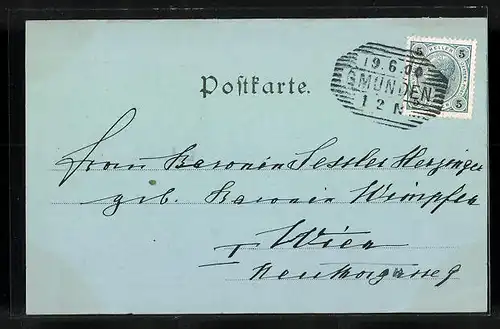 Postkarte.
19.6.00
GMUNDEN
12 N
HELLER
5 5
5 5
Frau Baronin Sessler Herzinger
geb. Baronin Wimpffen
I Wien